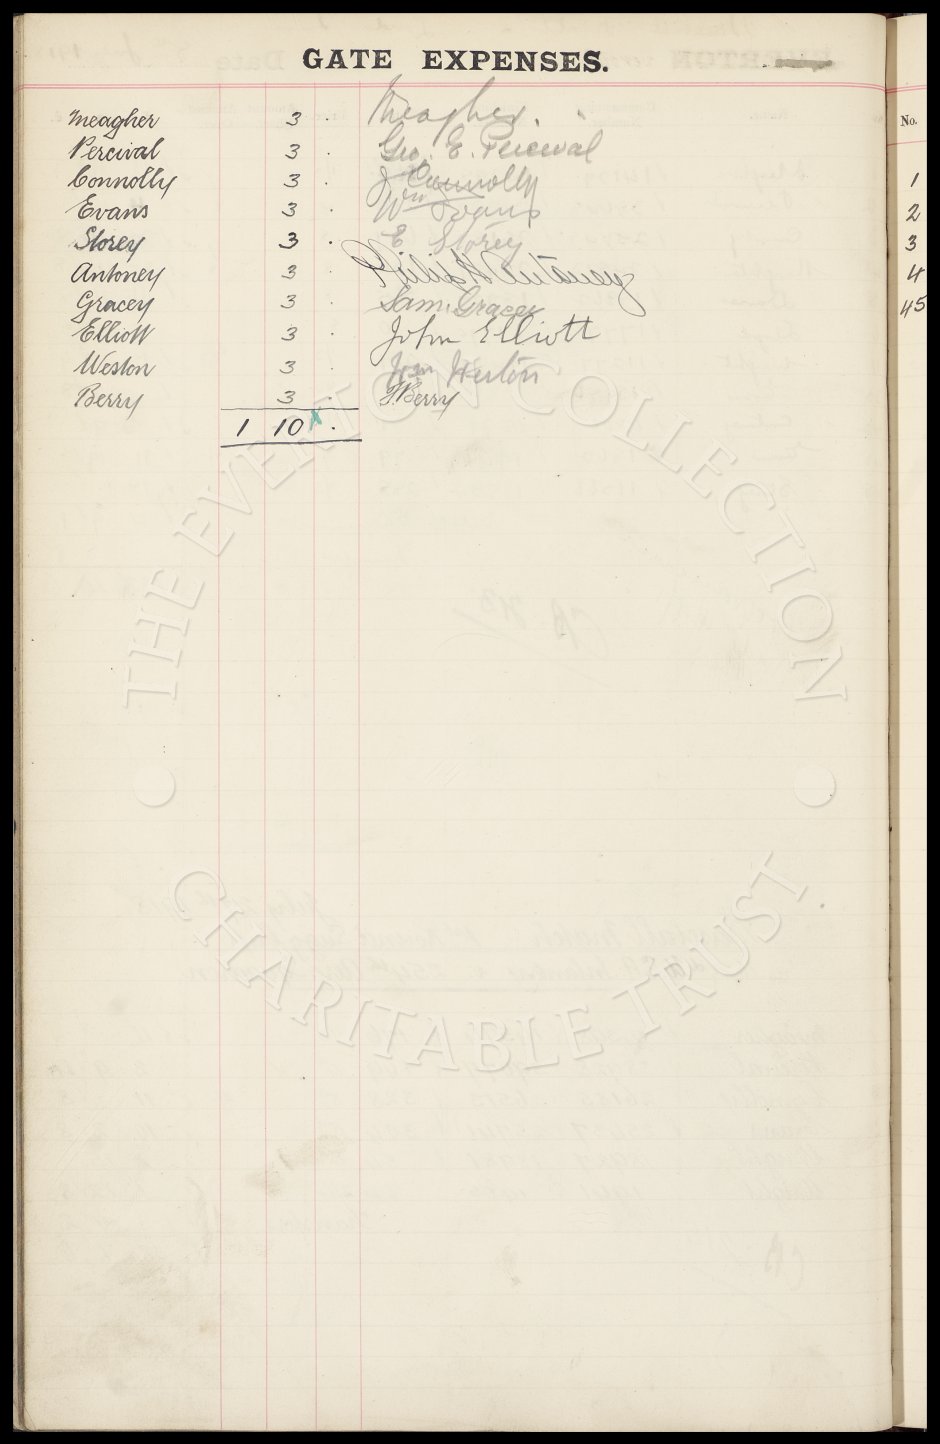 GATE EXPENSES.
Meagher 3 . Meagher.
Percival 3 . Geo. E. Percival
Connolly 3 . J Connolly
Evans 3 . Wm Evans
Storey 3 . E Storey
Antoney 3 . Philip H Antoney
Gracey 3 . Sam. Gracey
Elliott 3 . John Elliott
Weston 3 . Weston
Berry 3 . T. Berry
1 10 .
No.
1
2
3
4
45
THE EVERTON COLLECTION
CHARITABLE TRUST